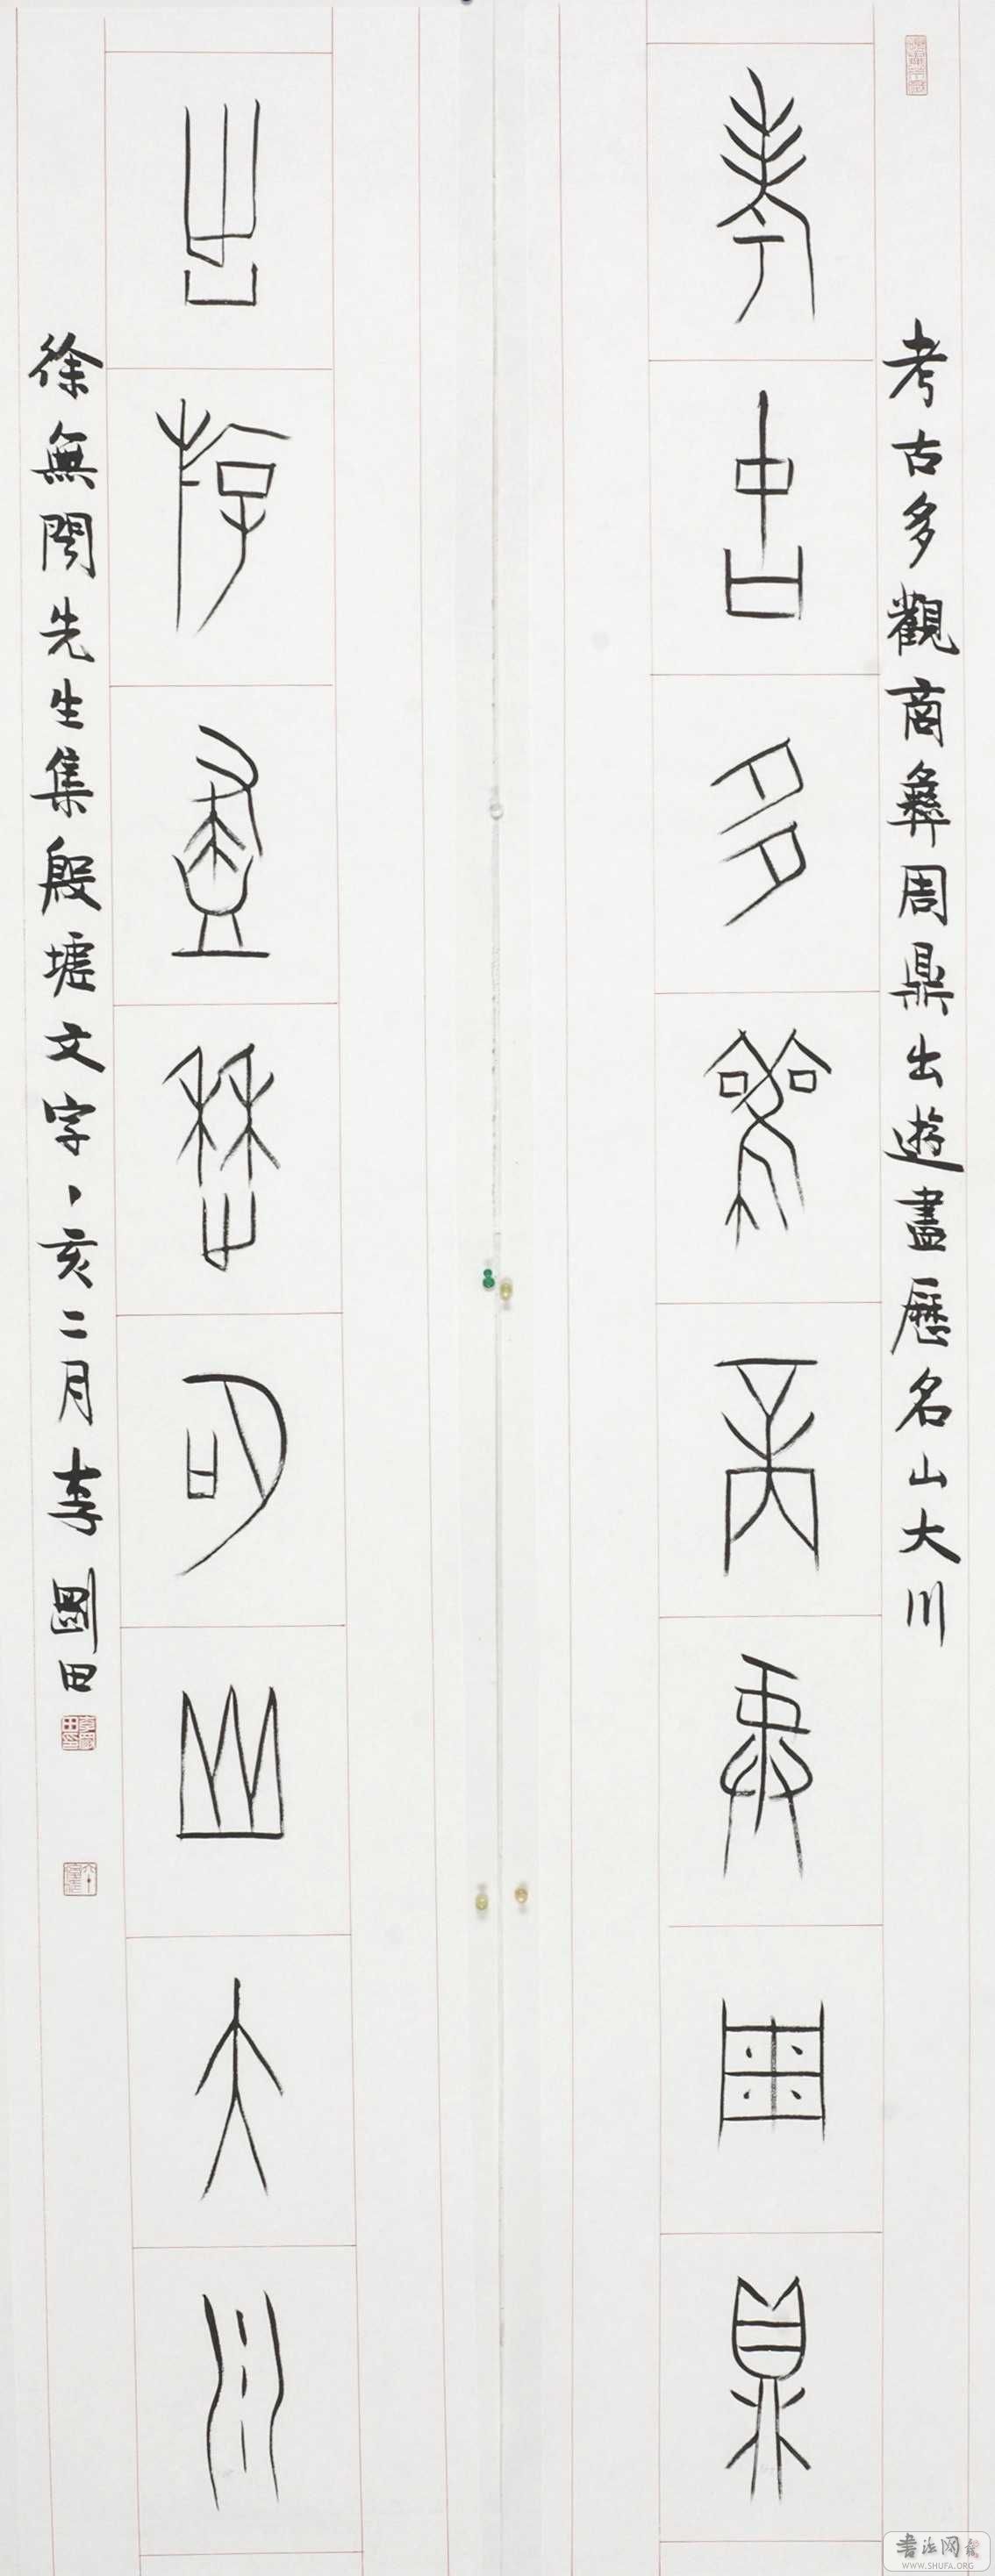 考古多觀商彝周鼎
考古多觀商彝周鼎出遊盡歷名山大川
出遊盡歷名山大川
徐無聞先生集殷墟文字丶亥二月李剛田
書法网
WWW.SHUFA.ORG